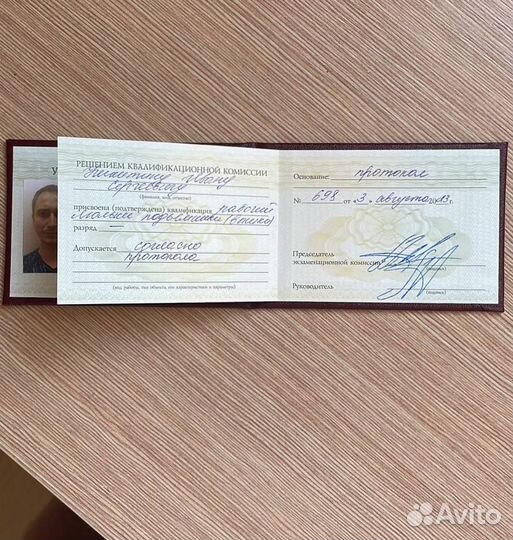 У
РЕШЕНИЕМ КВАЛИФИКАЦИОННОЙ КОМИССИИ
Никитину Ивану
Сергеевичу
(фамилия, имя, отчество)
присвоена (подтверждена) квалификация рабочий
люльки подъемника
разряд —
Допускается согласно
протокола
(вид работы, тип объекта, его характеристики и параметры)
Основание: протокол
№ 698 от 3. августа 2013 г.
Председатель
экзаменационной комиссии
(подпись)
Руководитель
(подпись)
Avito